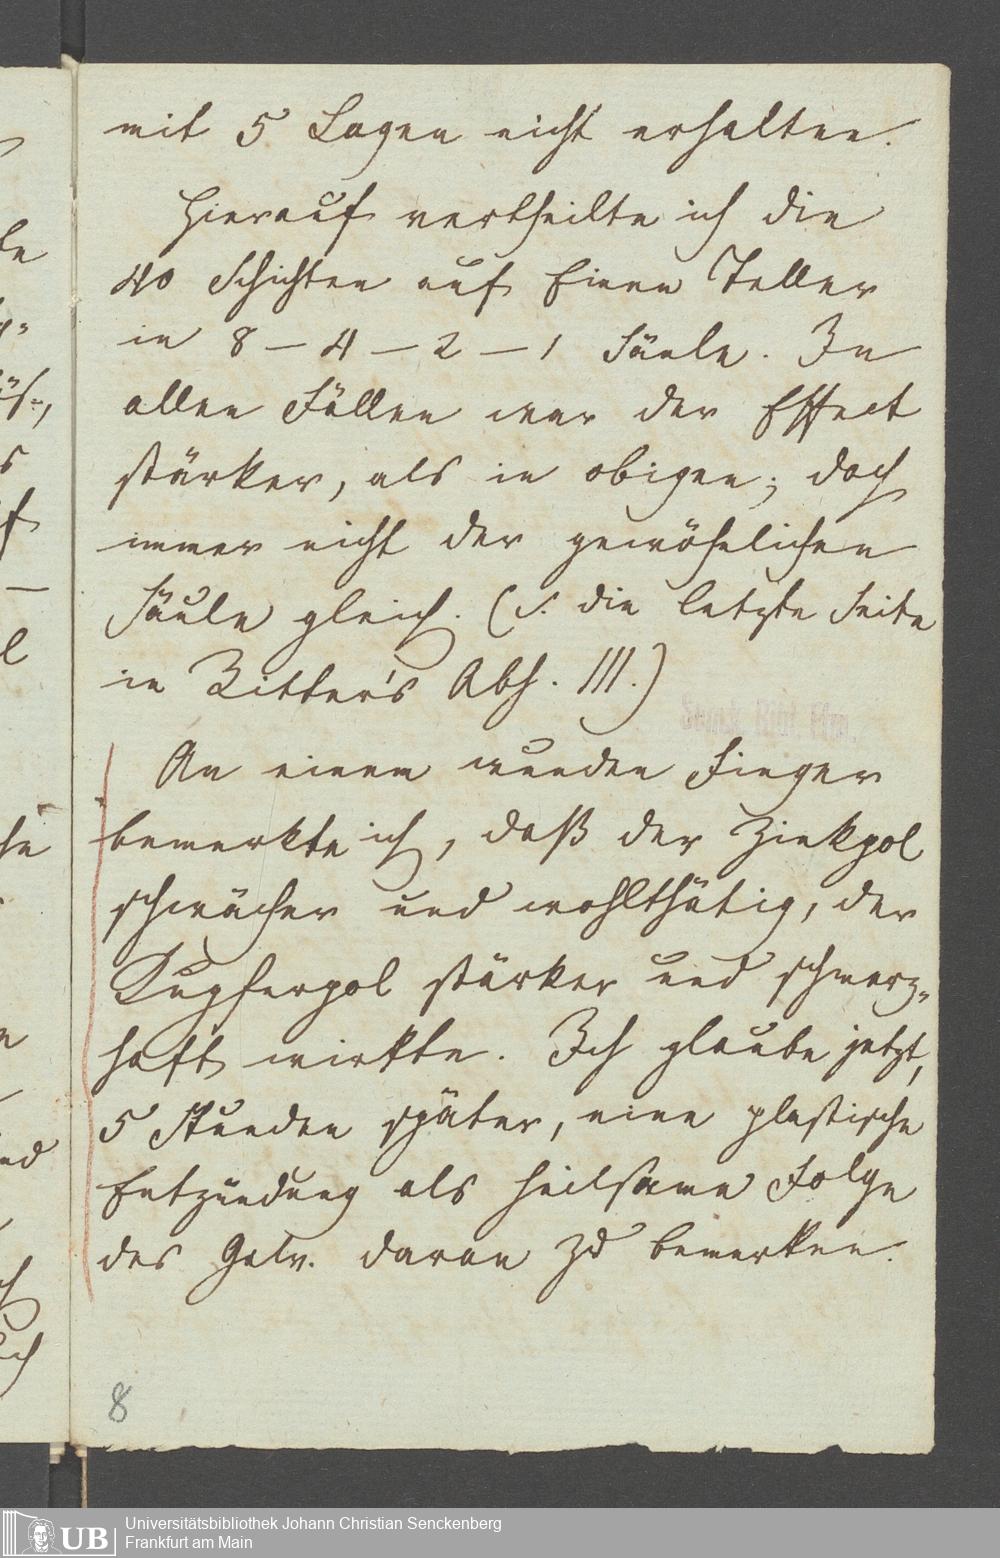 mit 5 Lagen nicht erhalten.
Hierauf vertheilte ich die
40 Schichten auf Einen Teller
in 8 — 4 — 2 — 1 Säule. In
allen Fällen war der Effect
stärker, als in obigen; doch
immer nicht der gewöhnlichen
Säule gleich. (s. die letzte Seite
in Ritter's Abh. III.)
An einem wunden Finger
bemerkte ich, daß der Zinkpol
schwächer und wohlthätig, der
Kupferpol stärker und schmerz-
haft wirkte. Ich glaube jetzt,
5 Stunden später, eine plastische
Entzündung als heilsame Folge
des Galv. daran zu bemerken.
8
UB
Universitätsbibliothek Johann Christian Senckenberg
Frankfurt am Main